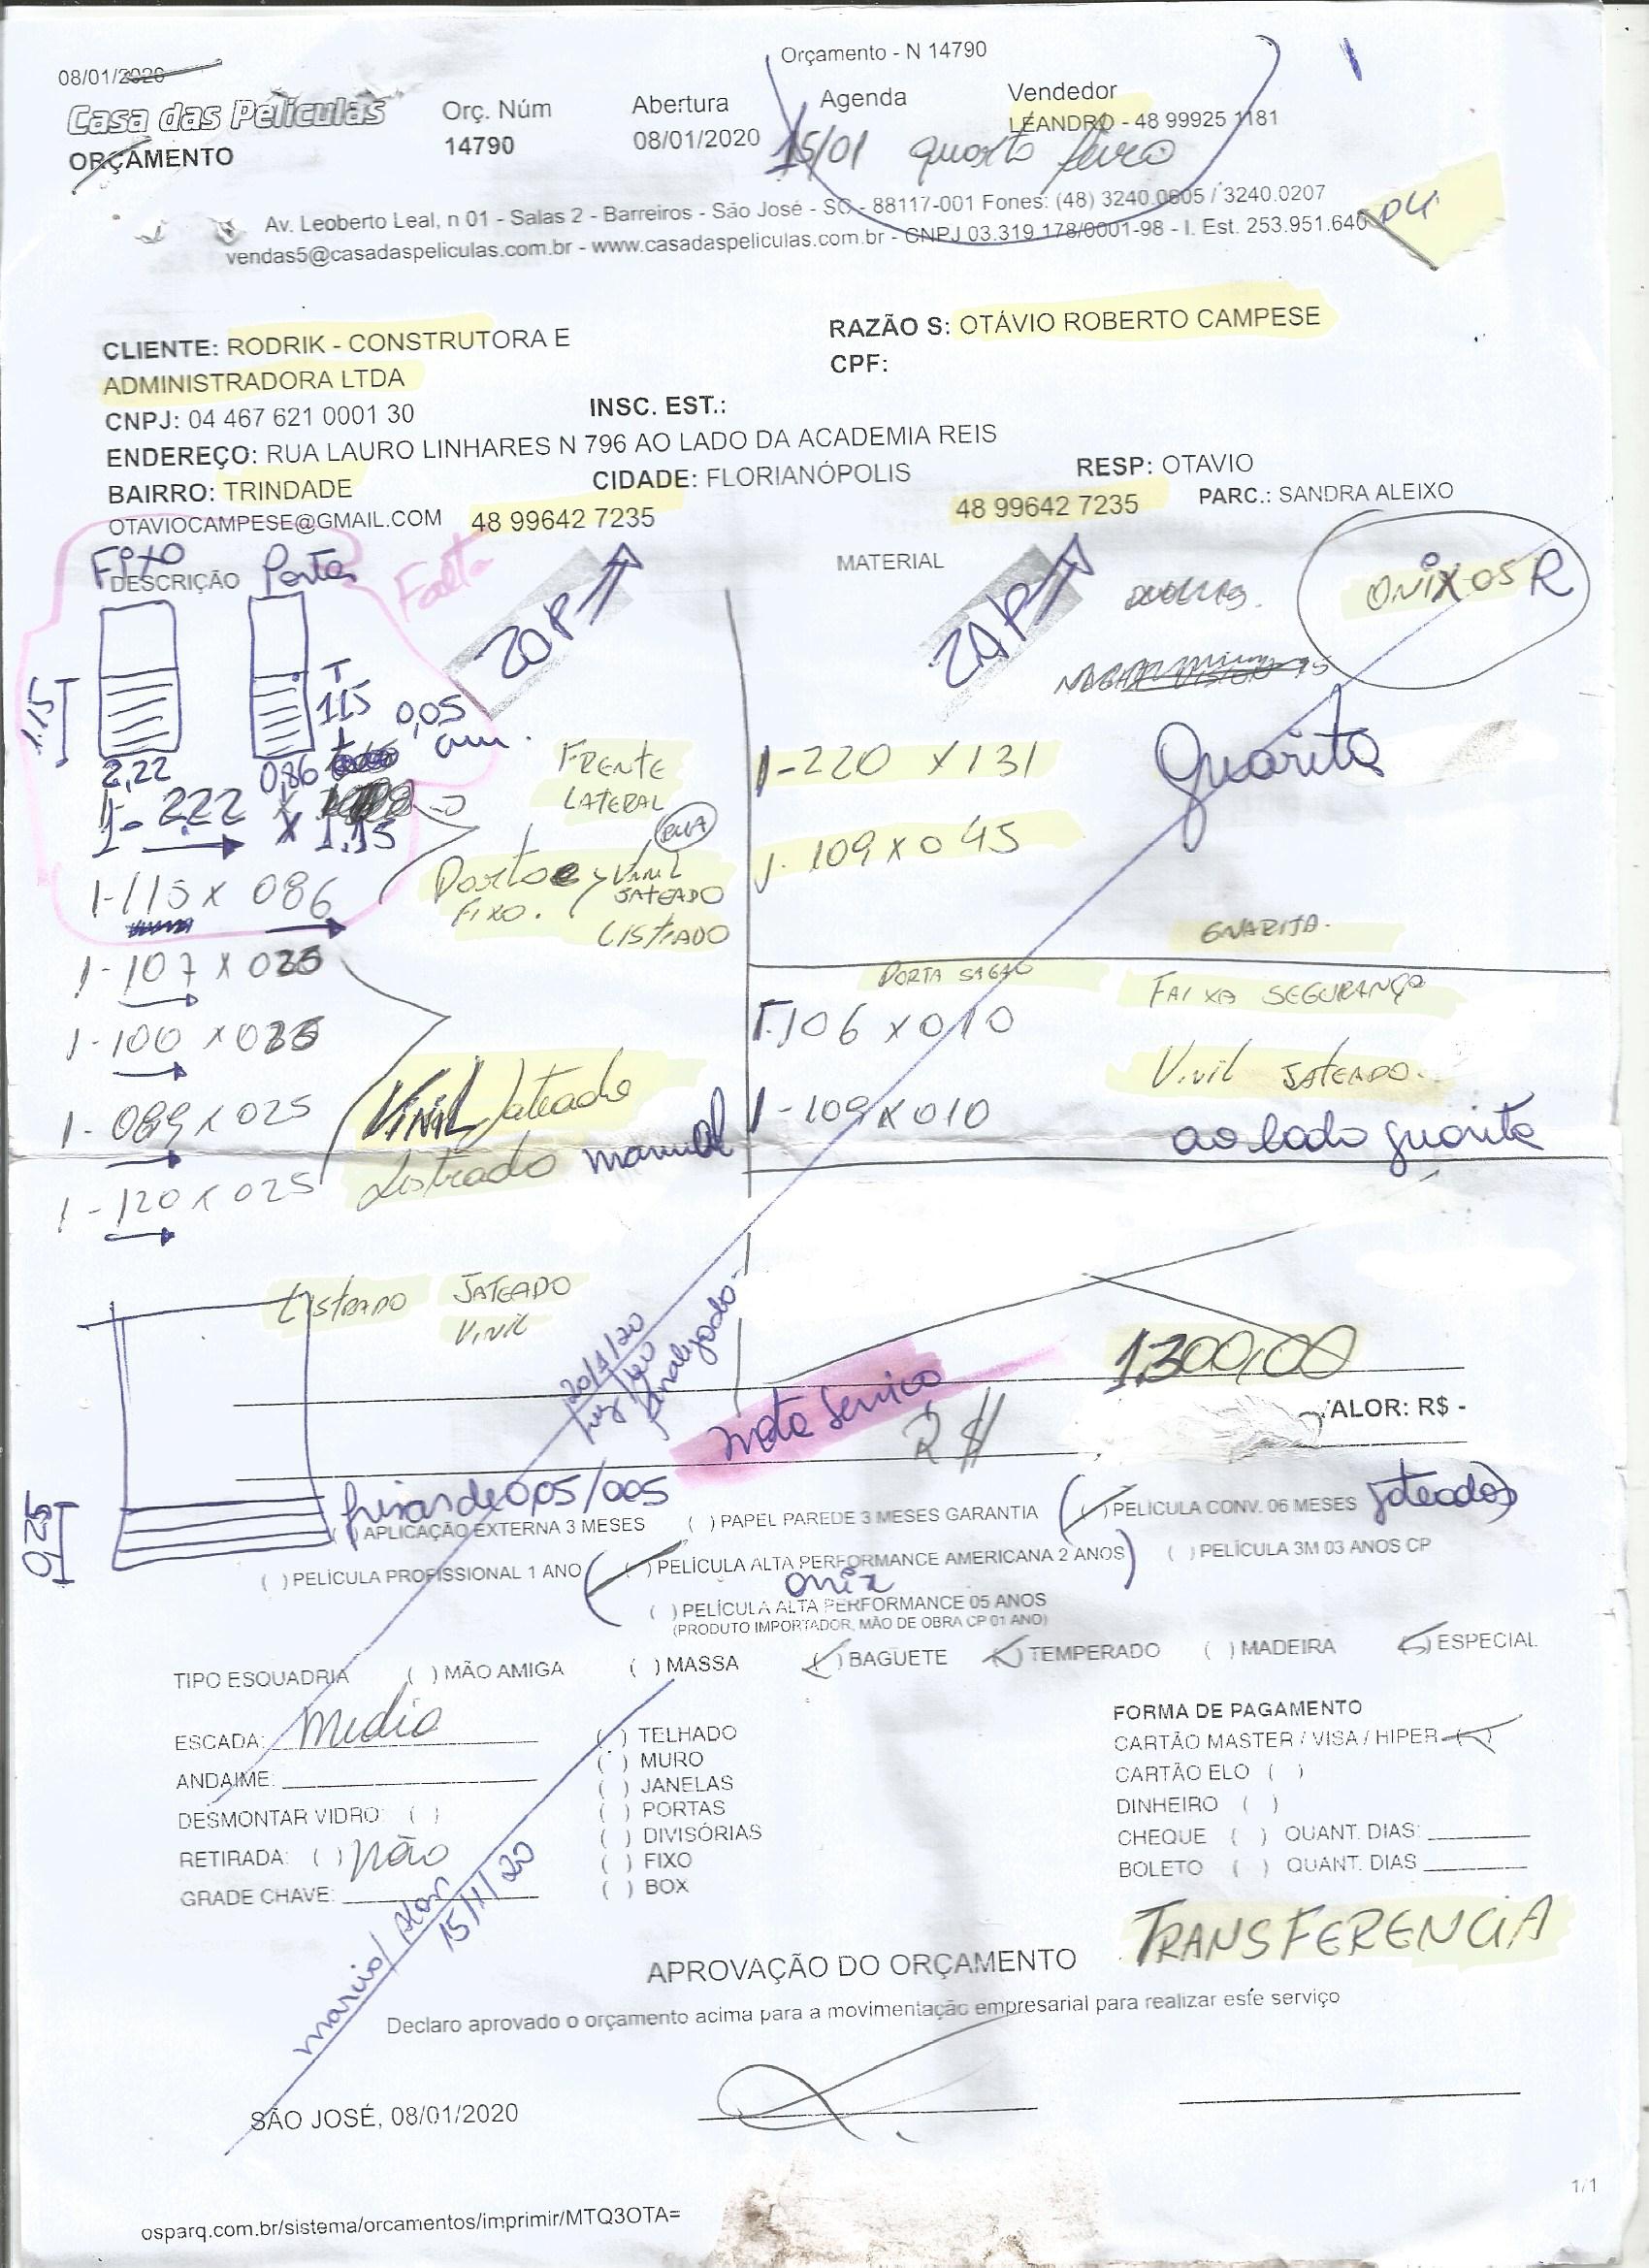 Orçamento - N 14790
08/01/2020
Casa das Películas
ORÇAMENTO
Orç. Núm
14790
Abertura
08/01/2020
Agenda
15/01 quarta feira
Vendedor
LEANDRO - 48 99925 1181
Av. Leoberto Leal, n 01 - Salas 2 - Barreiros - São José - SC - 88117-001 Fones: (48) 3240.0605 / 3240.0207
vendas5@casadaspeliculas.com.br - www.casadaspeliculas.com.br - CNPJ 03.319.178/0001-98 - I. Est. 253.951.640
CLIENTE: RODRIK - CONSTRUTORA E
ADMINISTRADORA LTDA
RAZÃO S: OTÁVIO ROBERTO CAMPESE
CPF:
CNPJ: 04 467 621 0001 30
INSC. EST.:
ENDEREÇO: RUA LAURO LINHARES N 796 AO LADO DA ACADEMIA REIS
BAIRRO: TRINDADE
CIDADE: FLORIANÓPOLIS
RESP: OTAVIO
OTAVIOCAMPESE@GMAIL.COM
48 99642 7235
48 99642 7235
PARC.: SANDRA ALEIXO
Fixo
Porta
Falta
DESCRIÇÃO
ZAP
MATERIAL
ZAP
ONIX 05 R
1.15
1.15
0,05
2,22
0,86
1- 222 x
x 1.15
1-115 x 086
FRENTE
LATERAL
RUA
Porta e
FIXO.
VINIL
JATEADO
LISTRADO
1-220 x 131
1- 109 x 045
Guarita
GUARITA.
1-107 x 025
1-100 x 025
1- 089 x 025
1- 120 x 025
Vinil Jateado
Listrado manual
1- 106 x 010
FAIXA SEGURANÇA
VINIL JATEADO.
1-109 x 010
ao lado guarita
LISTRADO JATEADO
VINIL
20/1/20
finalizado
nota serviço
R$
1.300,00
VALOR: R$ -
0,25
frisos de 0,05/005
( ) APLICAÇÃO EXTERNA 3 MESES
( ) PAPEL PAREDE 3 MESES GARANTIA
( ) PELÍCULA CONV. 06 MESES jateados
( ) PELÍCULA PROFISSIONAL 1 ANO
( ) PELÍCULA ALTA PERFORMANCE AMERICANA 2 ANOS
( ) PELÍCULA 3M 03 ANOS CP
onix
( ) PELÍCULA ALTA PERFORMANCE 05 ANOS
(PRODUTO IMPORTADOR, MÃO DE OBRA CP 01 ANO)
TIPO ESQUADRIA
( ) MÃO AMIGA
( ) MASSA
( ) BAGUETE
( ) TEMPERADO
( ) MADEIRA
( ) ESPECIAL
ESCADA: media
ANDAIME:
DESMONTAR VIDRO: ( )
RETIRADA: ( ) não
GRADE CHAVE:
( ) TELHADO
( ) MURO
( ) JANELAS
( ) PORTAS
( ) DIVISÓRIAS
( ) FIXO
( ) BOX
FORMA DE PAGAMENTO
CARTÃO MASTER / VISA / HIPER ( )
CARTÃO ELO ( )
DINHEIRO ( )
CHEQUE ( ) QUANT. DIAS:
BOLETO ( ) QUANT. DIAS
TRANSFERENCIA
marcio/
15/1/20
APROVAÇÃO DO ORÇAMENTO
Declaro aprovado o orçamento acima para a movimentação empresarial para realizar este serviço
SÃO JOSÉ, 08/01/2020
1/1
osparq.com.br/sistema/orcamentos/imprimir/MTQ3OTA=